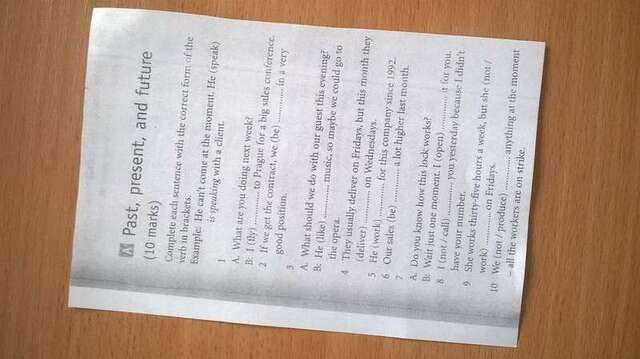 A Past, present, and future
(10 marks)
Complete each sentence with the correct form of the
verb in brackets.
Example: He can't come at the moment. He (speak)
is speaking with a client.
1
A. What are you doing next week?
B: I (fly) ............ to Prague for a big sales conference.
2 If we get the contract, we (be) ............ in a very
good position.
3
A. What should we do with our guest this evening?
B: He (like) ............ music, so maybe we could go to
the opera.
4 They usually deliver on Fridays, but this month they
(deliver) ............ on Wednesdays.
5 He (work) ............ for this company since 1992.
6 Our sales (be) ............ a lot higher last month.
7
A. Do you know how this lock works?
B: Wait just one moment. I (open) ............ it for you.
8 I (not / call) ............ you yesterday because I didn't
have your number.
9 She works thirty-five hours a week, but she (not /
work) ............ on Fridays.
10 We (not / produce) ............ anything at the moment
– all the workers are on strike.